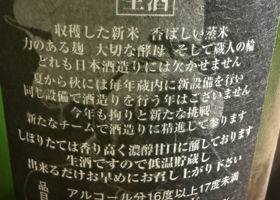 生酒
収穫した新米 香ばしい蒸米
力のある麹 大切な酵母 そして蔵人の輪
どれも日本酒造りには欠かせません
夏から秋には毎年蔵内に新設備を行い
同じ設備で酒造りを行う年はございません
今年も拘りと新たな挑戦
新たなチームで酒造りに精進して参ります
しぼりたては香り高く濃醇甘口に醸しております
生酒ですので低温貯蔵し
出来るだけお早めにお召し上がり下さい
アルコール分16度以上17度未満
品目